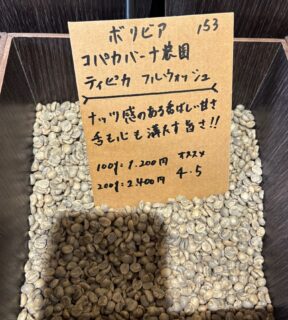 ボリビア 153
コパカバーナ農園
ティピカ フルウォッシュ
ナッツ感のある香ばしい甘さ
舌も心も満たす旨さ!!
100g:1.200円 オススメ
200g:2.400円 4・5